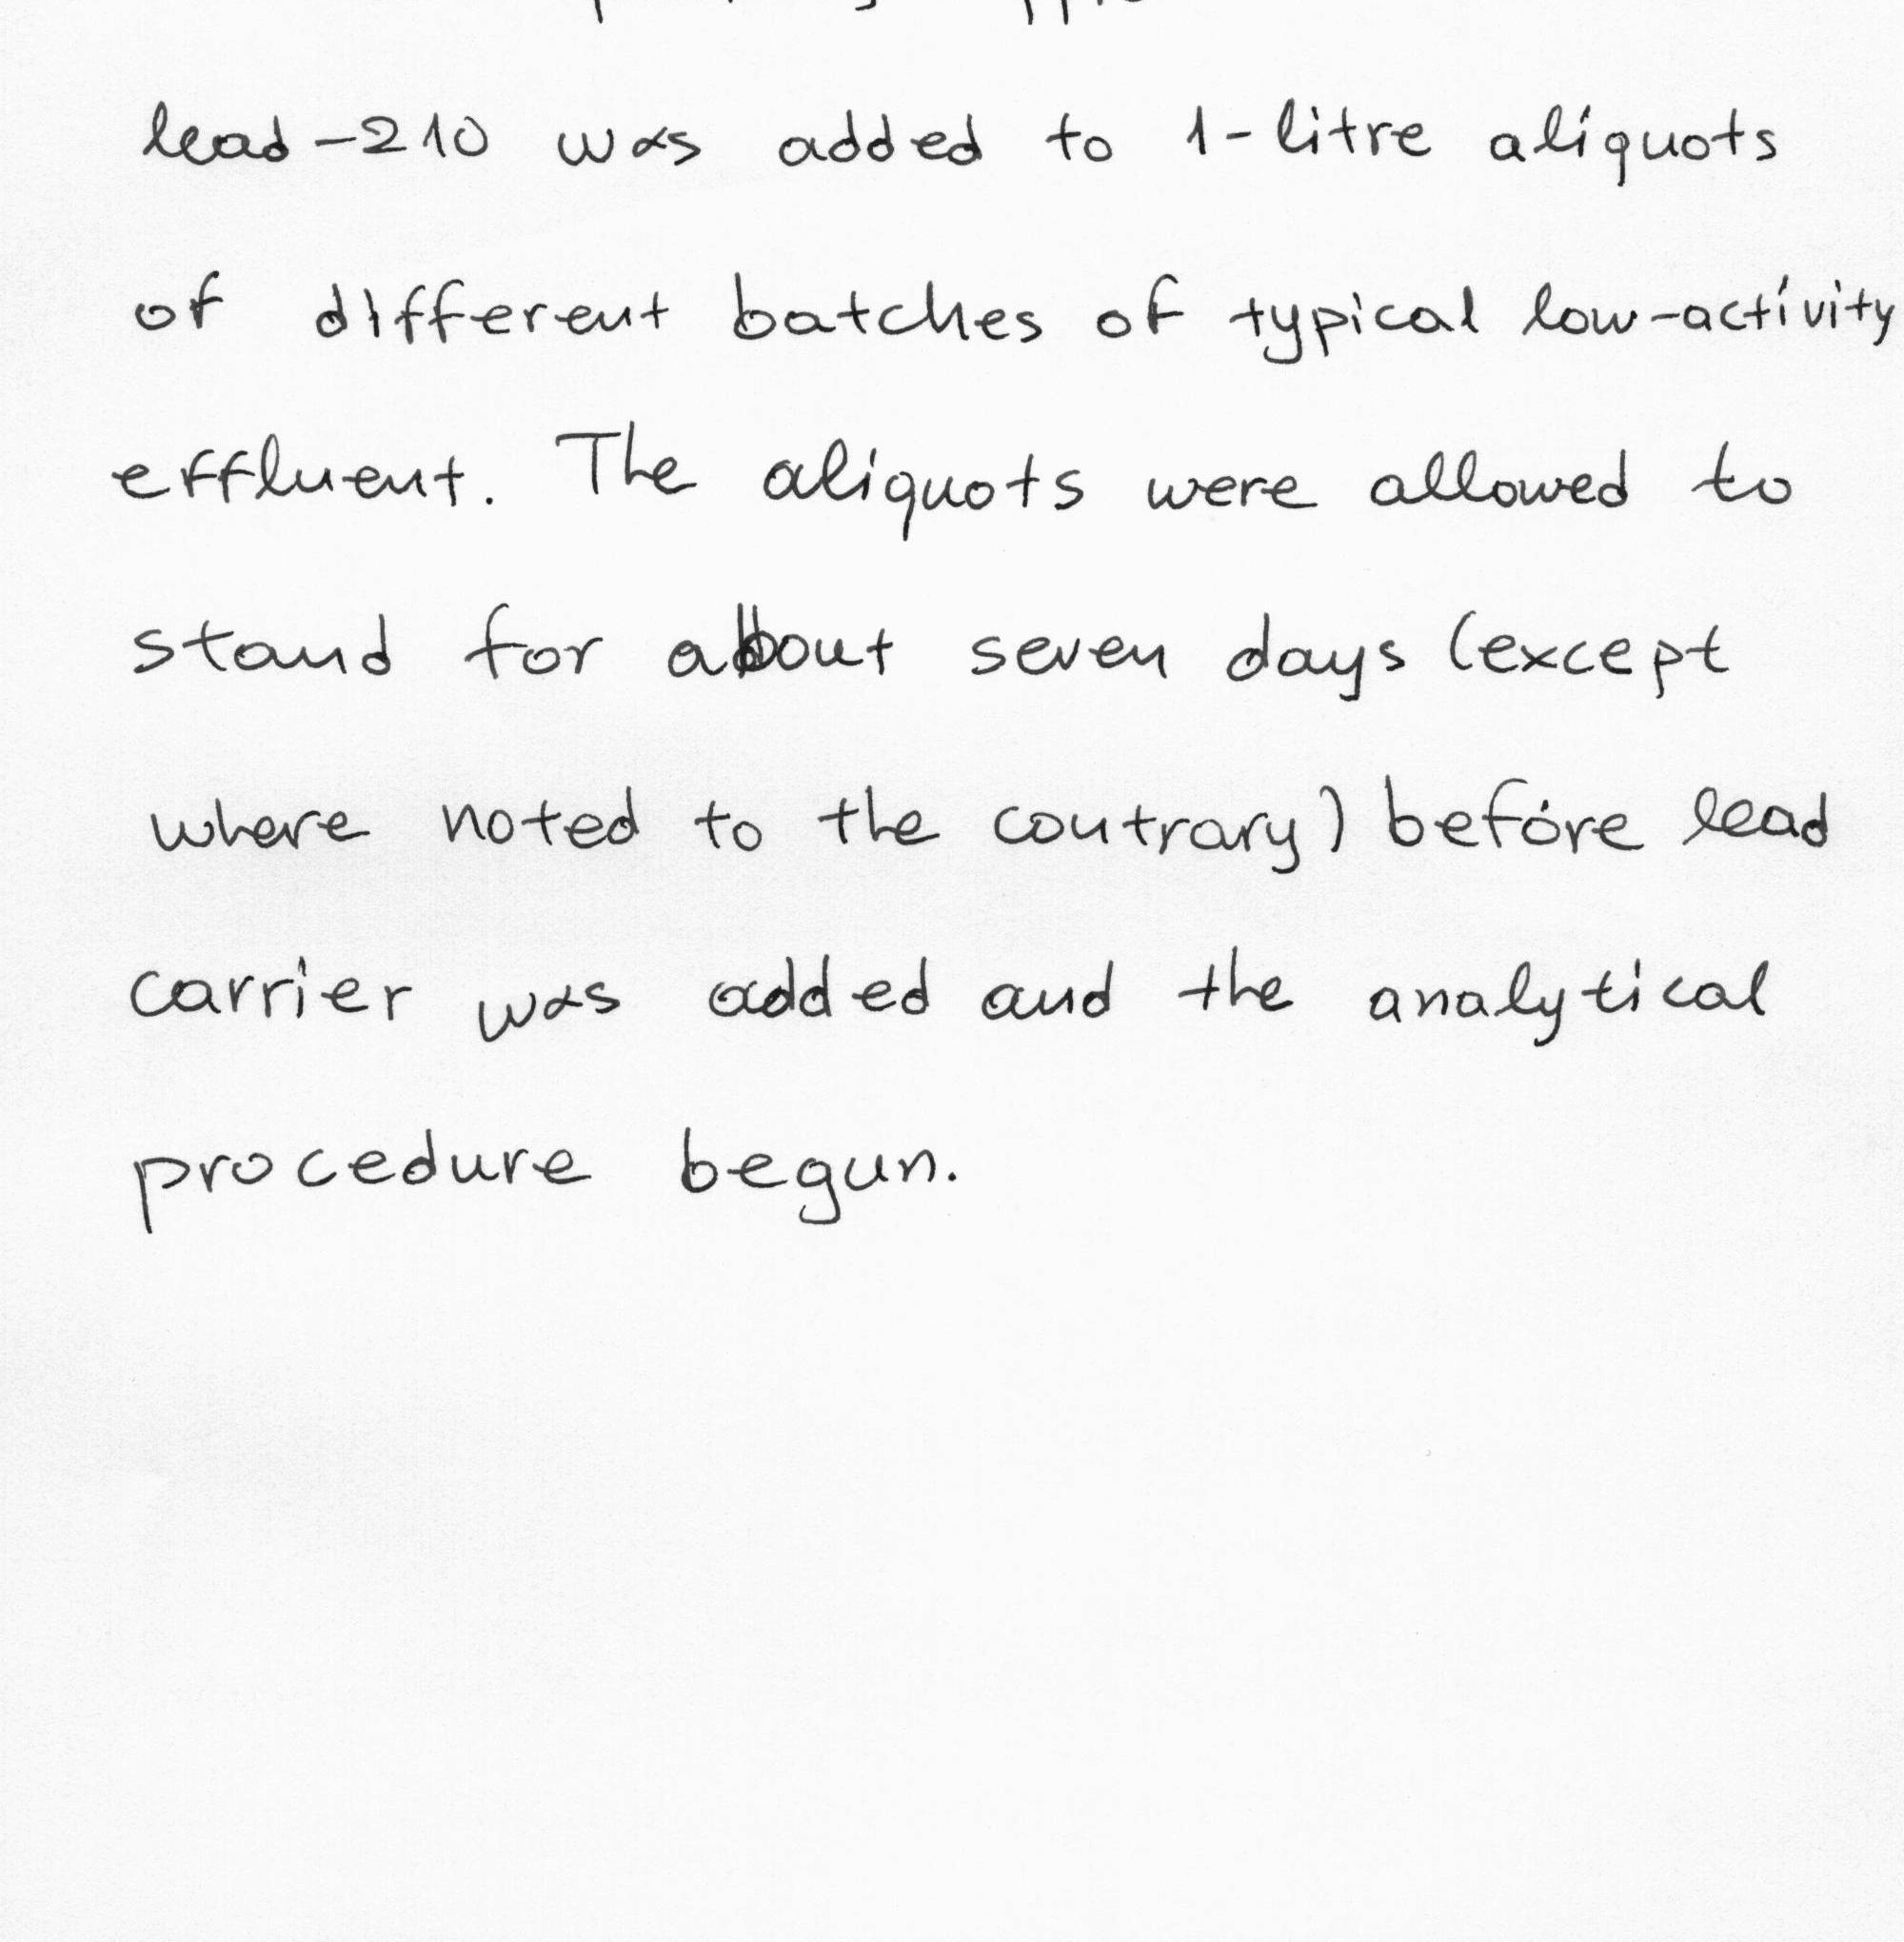 lead-210 was added to 1-litre aliquots
of different batches of typical low-activity
effluent. The aliquots were allowed to
stand for about seven days (except
where noted to the contrary) before lead
carrier was added and the analytical
procedure begun.